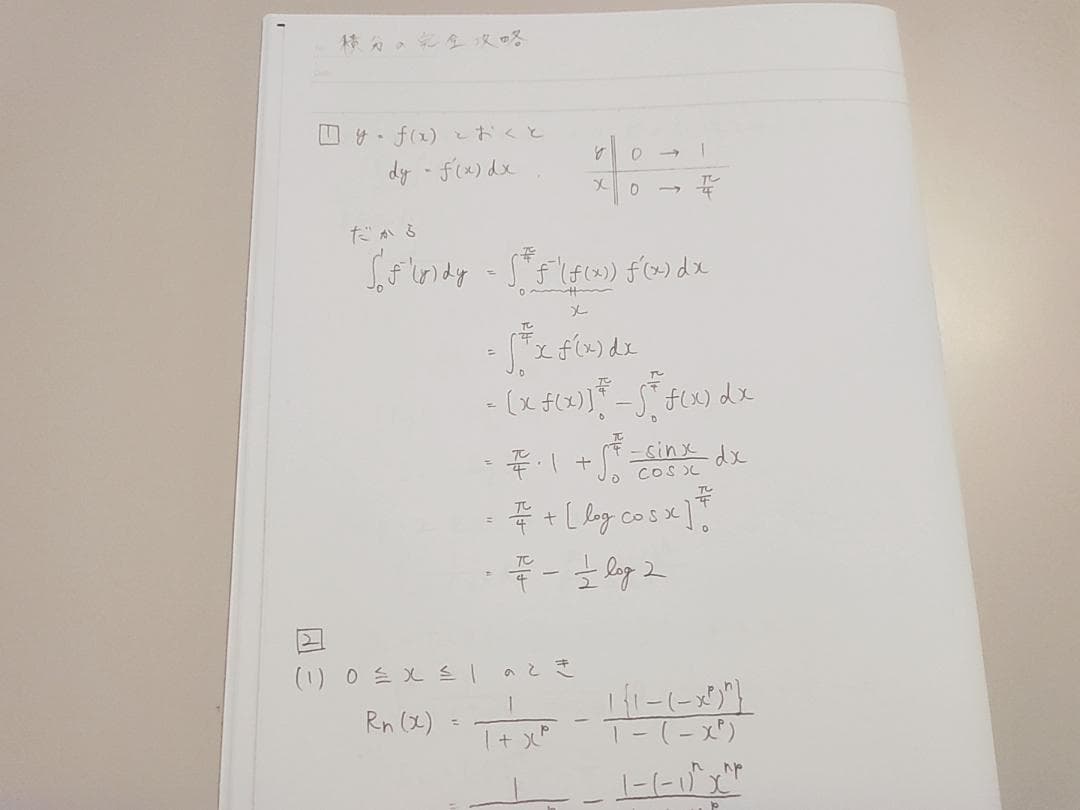 積分の完全攻略
1 y = f(x) とおくと
dy = f'(x) dx.
y | 0 → 1
x | 0 → π/4
だから
∫₀¹ f⁻¹(y) dy = ∫₀^{π/4} f⁻¹(f(x)) f'(x) dx
x
= ∫₀^{π/4} x f'(x) dx
= [x f(x)]₀^{π/4} - ∫₀^{π/4} f(x) dx
= π/4 · 1 + ∫₀^{π/4} (-sin x)/(cos x) dx
= π/4 + [log cos x]₀^{π/4}
= π/4 - 1/2 log 2
2
(1) 0 ≦ x ≦ 1 のとき
Rn(x) = 1/(1 + x^p) - 1{1-(-x^p)^n}/(1-(-x^p))
= 1 - 1-(-1)^n x^{np}